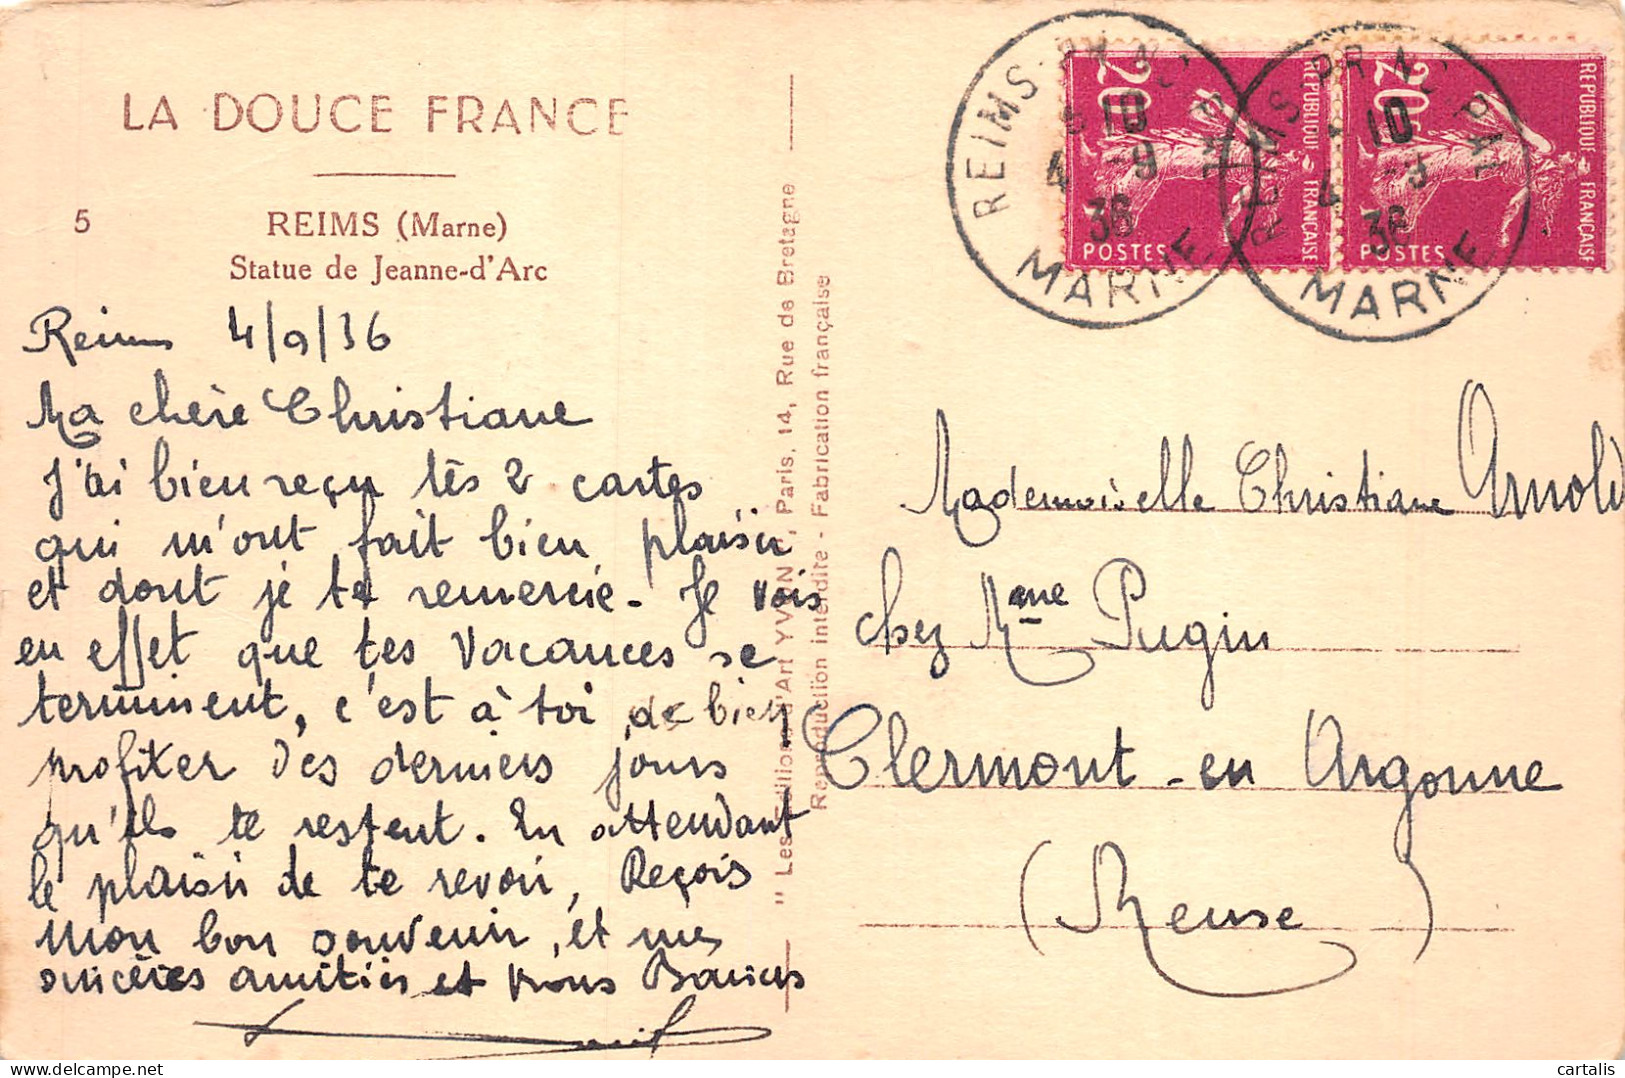 LA DOUCE FRANCE
5
REIMS (Marne)
Statue de Jeanne-d'Arc
Reims 4/9/36
Ma chère Christiane
J'ai bien reçu tes 2 cartes
qui m'ont fait bien plaisir
et dont je te remercie. Je vois
en effet que tes vacances se
terminent, c'est à toi de bien
profiter des derniers jours
qu'ils te restent. En attendant
le plaisir de te revoir, Reçois
mon bon souvenir, et mes
sincères amitiés et bons Baisers
"Les Editions d'Art YVON", Paris, 14, Rue de Bretagne
Reproduction interdite - Fabrication française
REIMS PRINCIPAL
10
4 -9
36
MARNE
REIMS PRINCIPAL
10
4 -9
36
MARNE
20c
REPUBLIQUE FRANÇAISE
POSTES
20c
REPUBLIQUE FRANÇAISE
POSTES
Mademoiselle Christiane Arnold
chez Mme Pugin
Clermont-en Argonne
(Meuse)
cartalis
delcampe.net